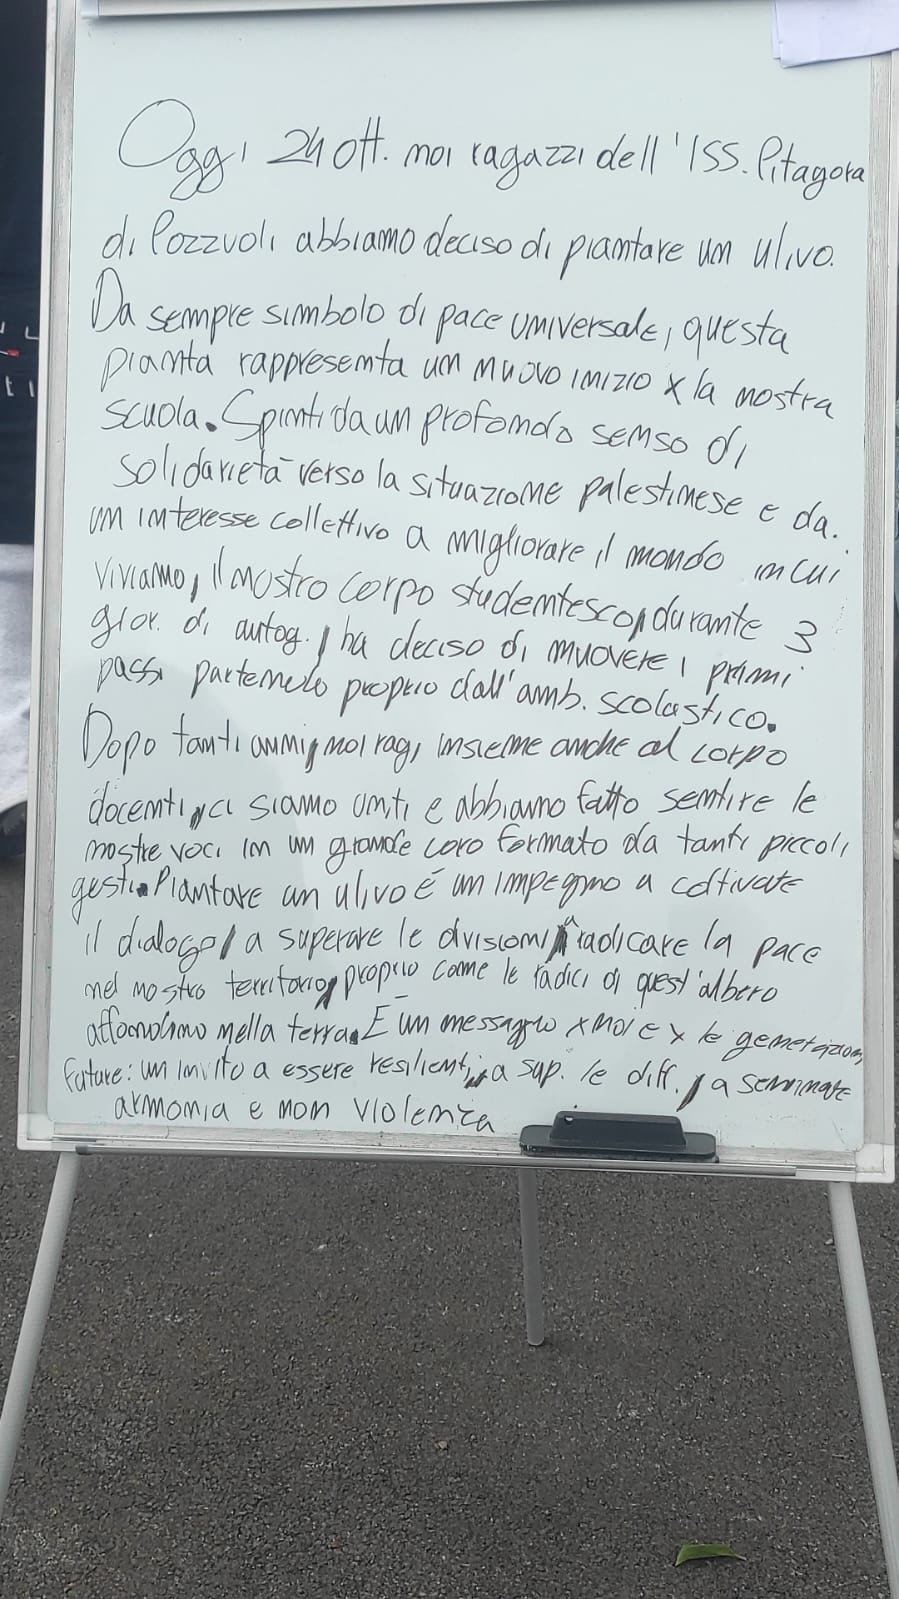 Oggi 24 ott. noi ragazzi dell'ISS. Pitagora
di Pozzuoli abbiamo deciso di piantare un ulivo.
Da sempre simbolo di pace universale, questa
pianta rappresenta un nuovo inizio x la nostra
scuola. Spinti da un profondo senso di
solidarietà verso la situazione palestinese e da.
un interesse collettivo a migliorare il mondo in cui
viviamo, il nostro corpo studentesco, durante 3
gior. di autog., ha deciso di muovere i primi
passi partendo proprio dall'amb. scolastico.
Dopo tanti anni, noi rag, insieme anche al corpo
docenti, ci siamo uniti e abbiamo fatto sentire le
nostre voci in un grande coro formato da tanti piccoli
gesti. Piantare un ulivo é un impegno a coltivate
il dialogo, a superare le divisioni, a radicare la pace
nel nostro territorio, proprio come le radici di quest'albero
affondano nella terra. É un messaggio x noi e x le generazioni
future: un invito a essere resilienti, a sup. le diff., a seminare
armonia e non violenza